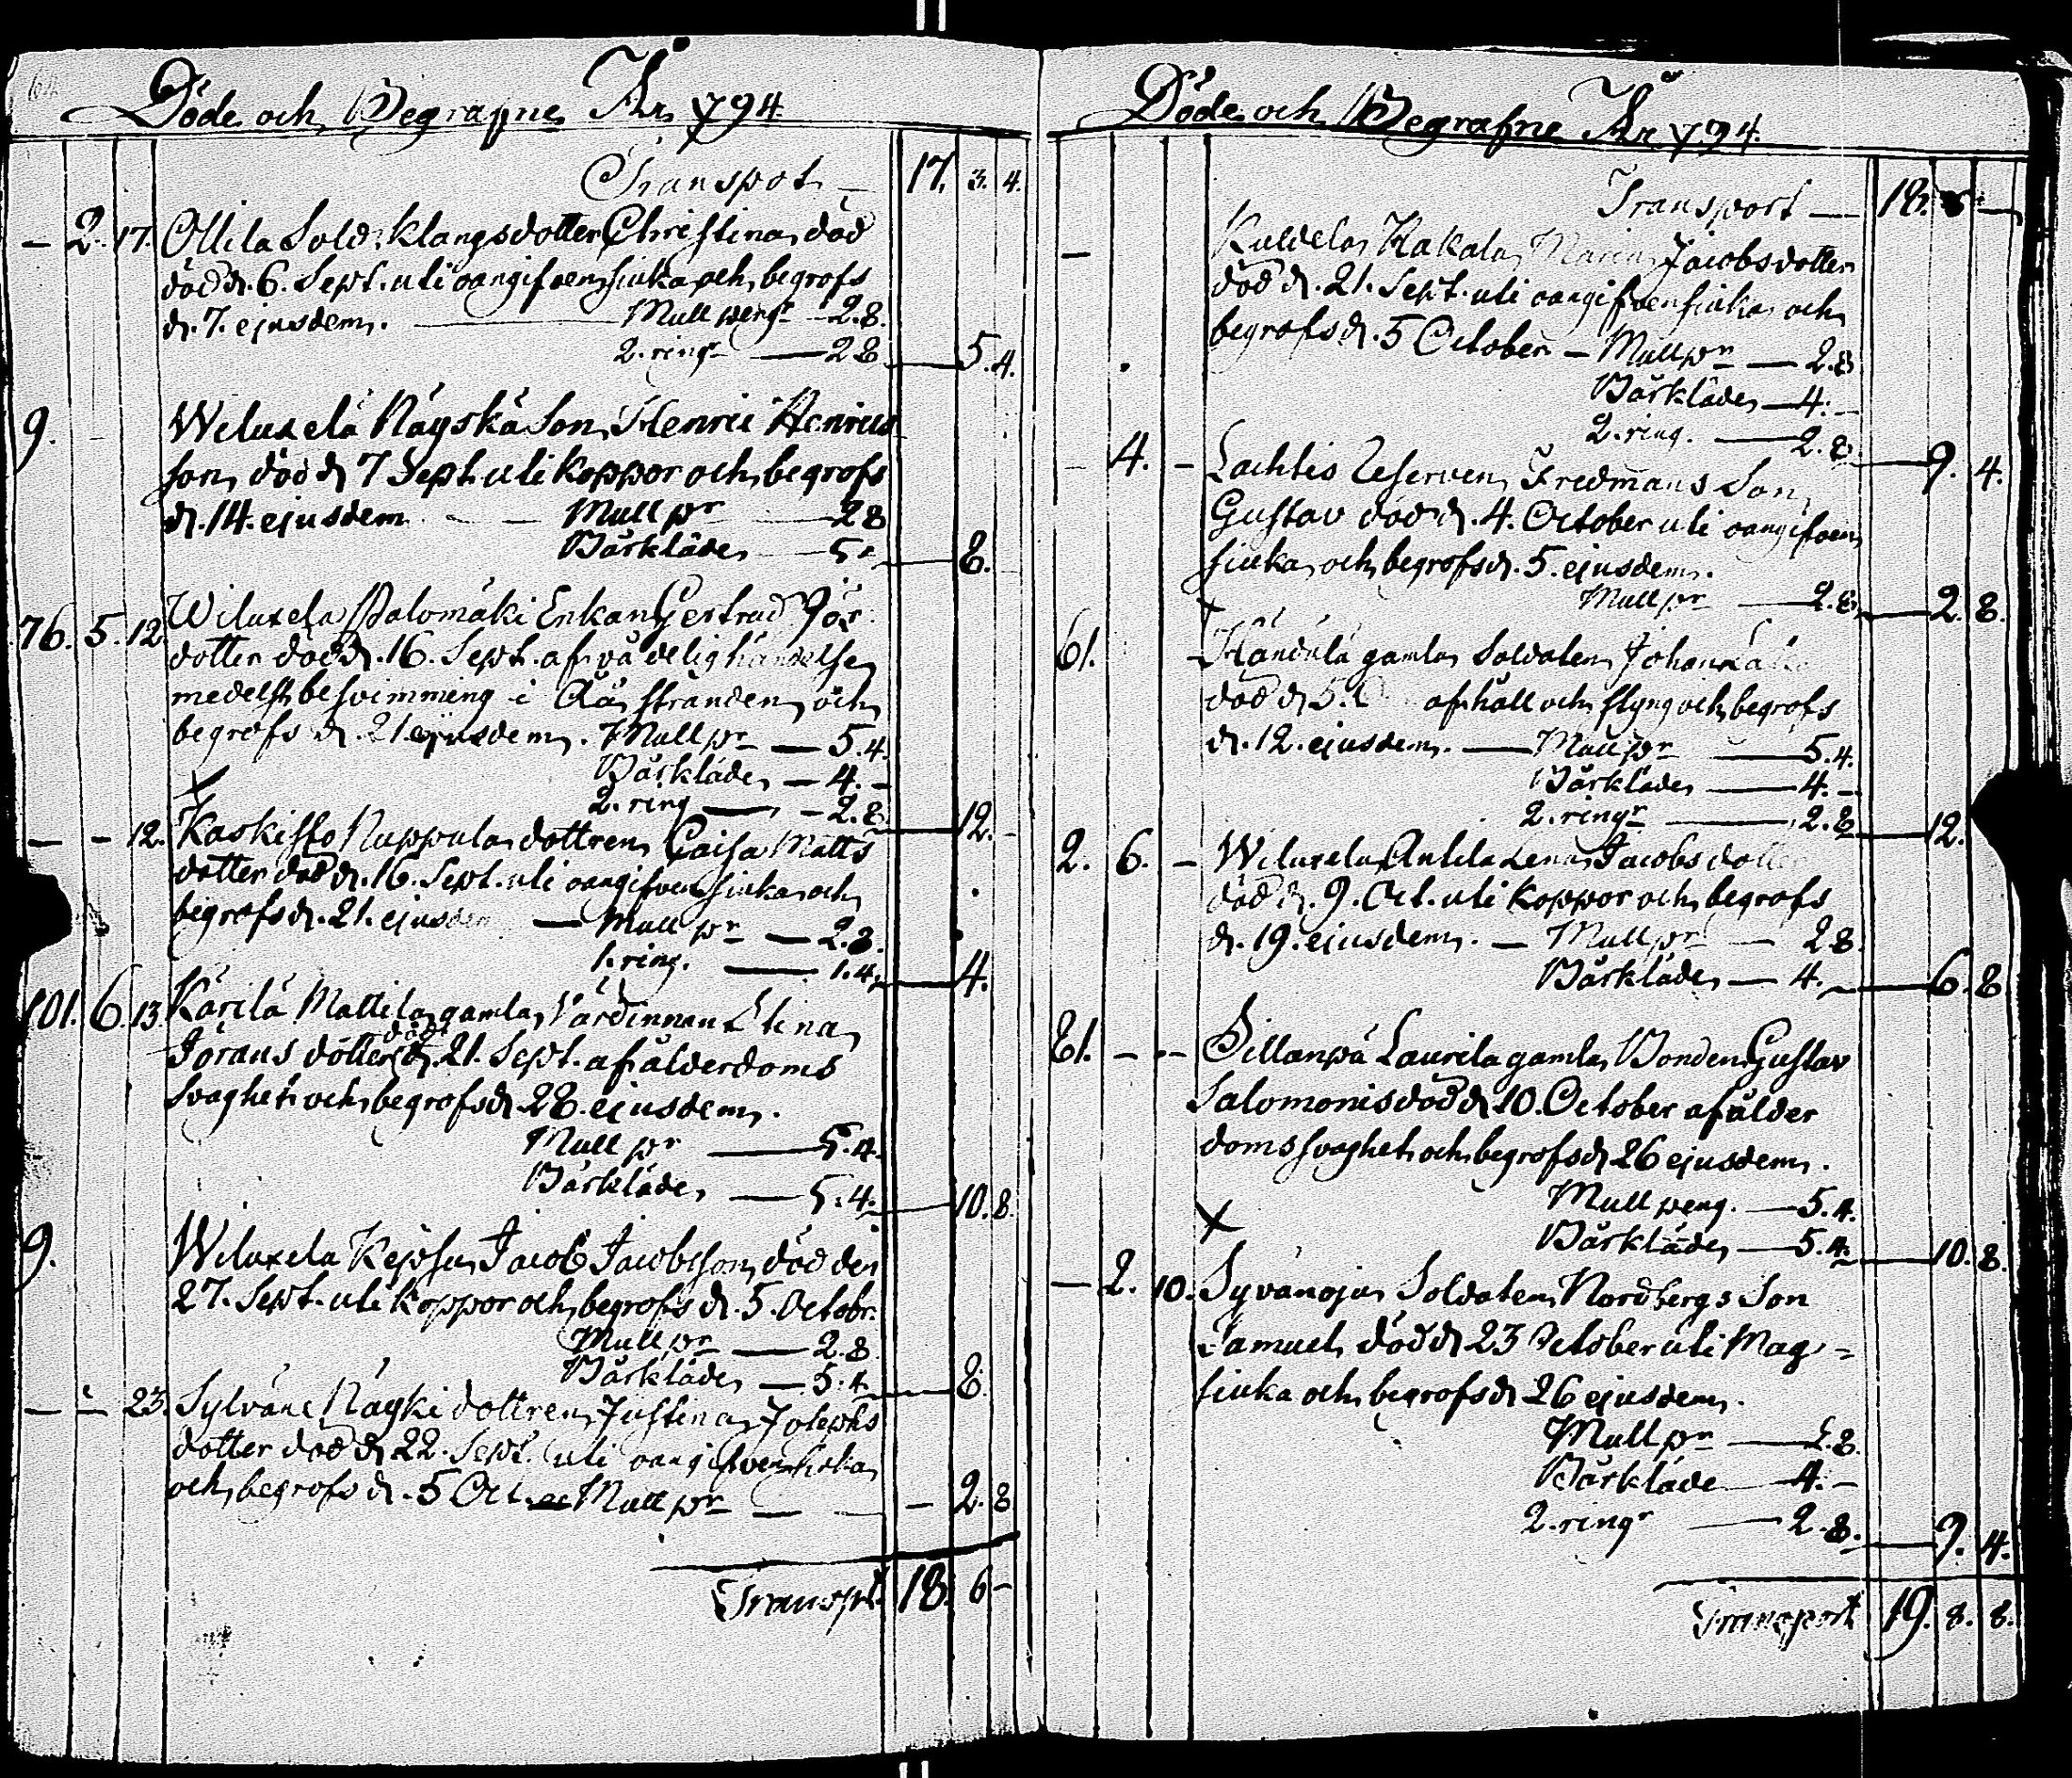 Döde och Begrafne År 1794.
Transport — 17. 3. 4.
— 2. 17. Ollila Sold. Klangs dotter Christina död
död d. 6. Sept. uti oangifven siuka och begrofs
d. 7. ejusdem. — Mull peng:r — 2.8.
2. ring:r — 2 8 — 5. 4.
9. Wiluxela Näyskä Son Henric Henrics
son död d. 7 Sept. uti Koppor och begrofs
d. 14. ejusdem — Mull p:r — 2 8
Bårkläde — 5 — 8.
76. 5. 12. Wiluxela Palomäki Enkan Gertrud Jör
dotter död d. 16. Sept. af vådelig händelse
medelst besvimming i Åä stranden och
begrofs d. 21 ejusdem. Mull p:r — 5. 4.
Bårkläde — 4. —
2. ring — 2.8 — 12. —
— — 12. Kaskisto Nuppula dottren Caisa Matts
dotter död d. 16. Sept. uti oangifven siuka och
begrofs d. 21. ejusdem — Mull p:r — 2.8.
1. ring. — 1. 4. — 4.
101. 6. 13. Kärilä Mattila gamla Värdinnan Elina
Jörans dotter död d. 21. Sept. af ålderdoms
svaghet och begrofs d. 28. ejusdem.
Mull p:r — 5. 4.
Bårkläde — 5. 4. — 10. 8.
9. Wiluxela Jacob Jacobsson död den
27. Sept. uti Koppor och begrofs d. 5. Octobr.
Mull p:r — 2.8
Bårkläde — 5. 4. — 8.
— — 23. Sylväne Näyki dottren Justina Josephs
dotter död d. 22. Sept. uti oangifven siuka
och begrofs d. 5 Oct. Mull p:r — — 2. 8
Transpt. 18. 6 —
Döde och Begrafne År 1794.
Transport — 18. —
— Kuldela Kakala Maria Jacobs dotter
död d. 21. Sept. uti oangifven siuka och
begrofs d. 5 October — Mull p:r — 2.8
Bårkläde — 4. —
2. ring. — 2.8 — 9. 4.
— 4. — Lachtis Reserven Fredmans Son
Gustav död d. 4. October uti oangifven
siuka och begrofs d. 5. ejusdem.
Mull p:r — 2.8 — 2. 8.
61. — Handula gamla Soldaten Johan
död d. 5. af håll och styng och begrofs
d. 12. ejusdem. — Mull p:r — 5. 4.
Bårkläde — 4. —
2. ring:r — 2.8 — 12.
2. 6. — Wiluxela Anttila Lena Jacobs dotter
död d. 9. Oct. uti Koppor och begrofs
d. 19. ejusdem. — Mull p:r — 2 8.
Bårkläde — 4. — 6. 8
81. — — Sillanpä Laurila gamla Bonden Gustav
Salomonis död d. 10. October af ålder
doms svaghet och begrofs d. 26 ejusdem.
Mull peng. — 5. 4.
Bårkläde — 5. 4. — 10. 8.
— 2. 10. Syvänoja Soldaten Nordbergs Son
Samuel död d. 23 October uti Mag=
siuka och begrofs d. 26 ejusdem.
Mull p:r — 2.8.
Bårkläde — 4. —
2. ring:r — 2.8. — 9. 4.
Transport 19. 8. 8.